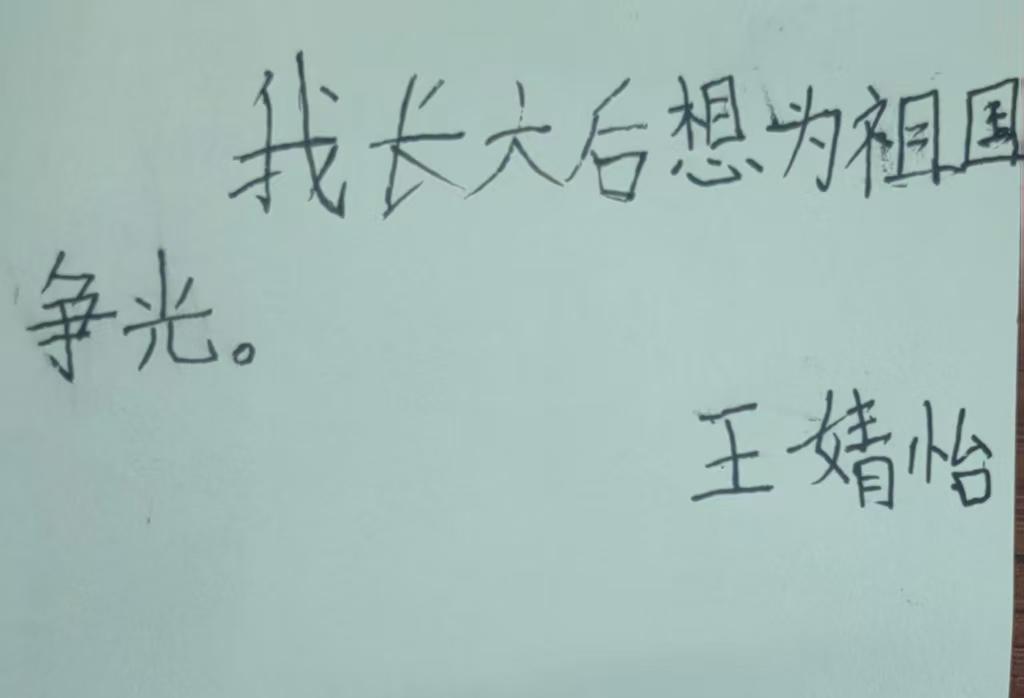 我长大后想为祖国
争光。
王婧怡